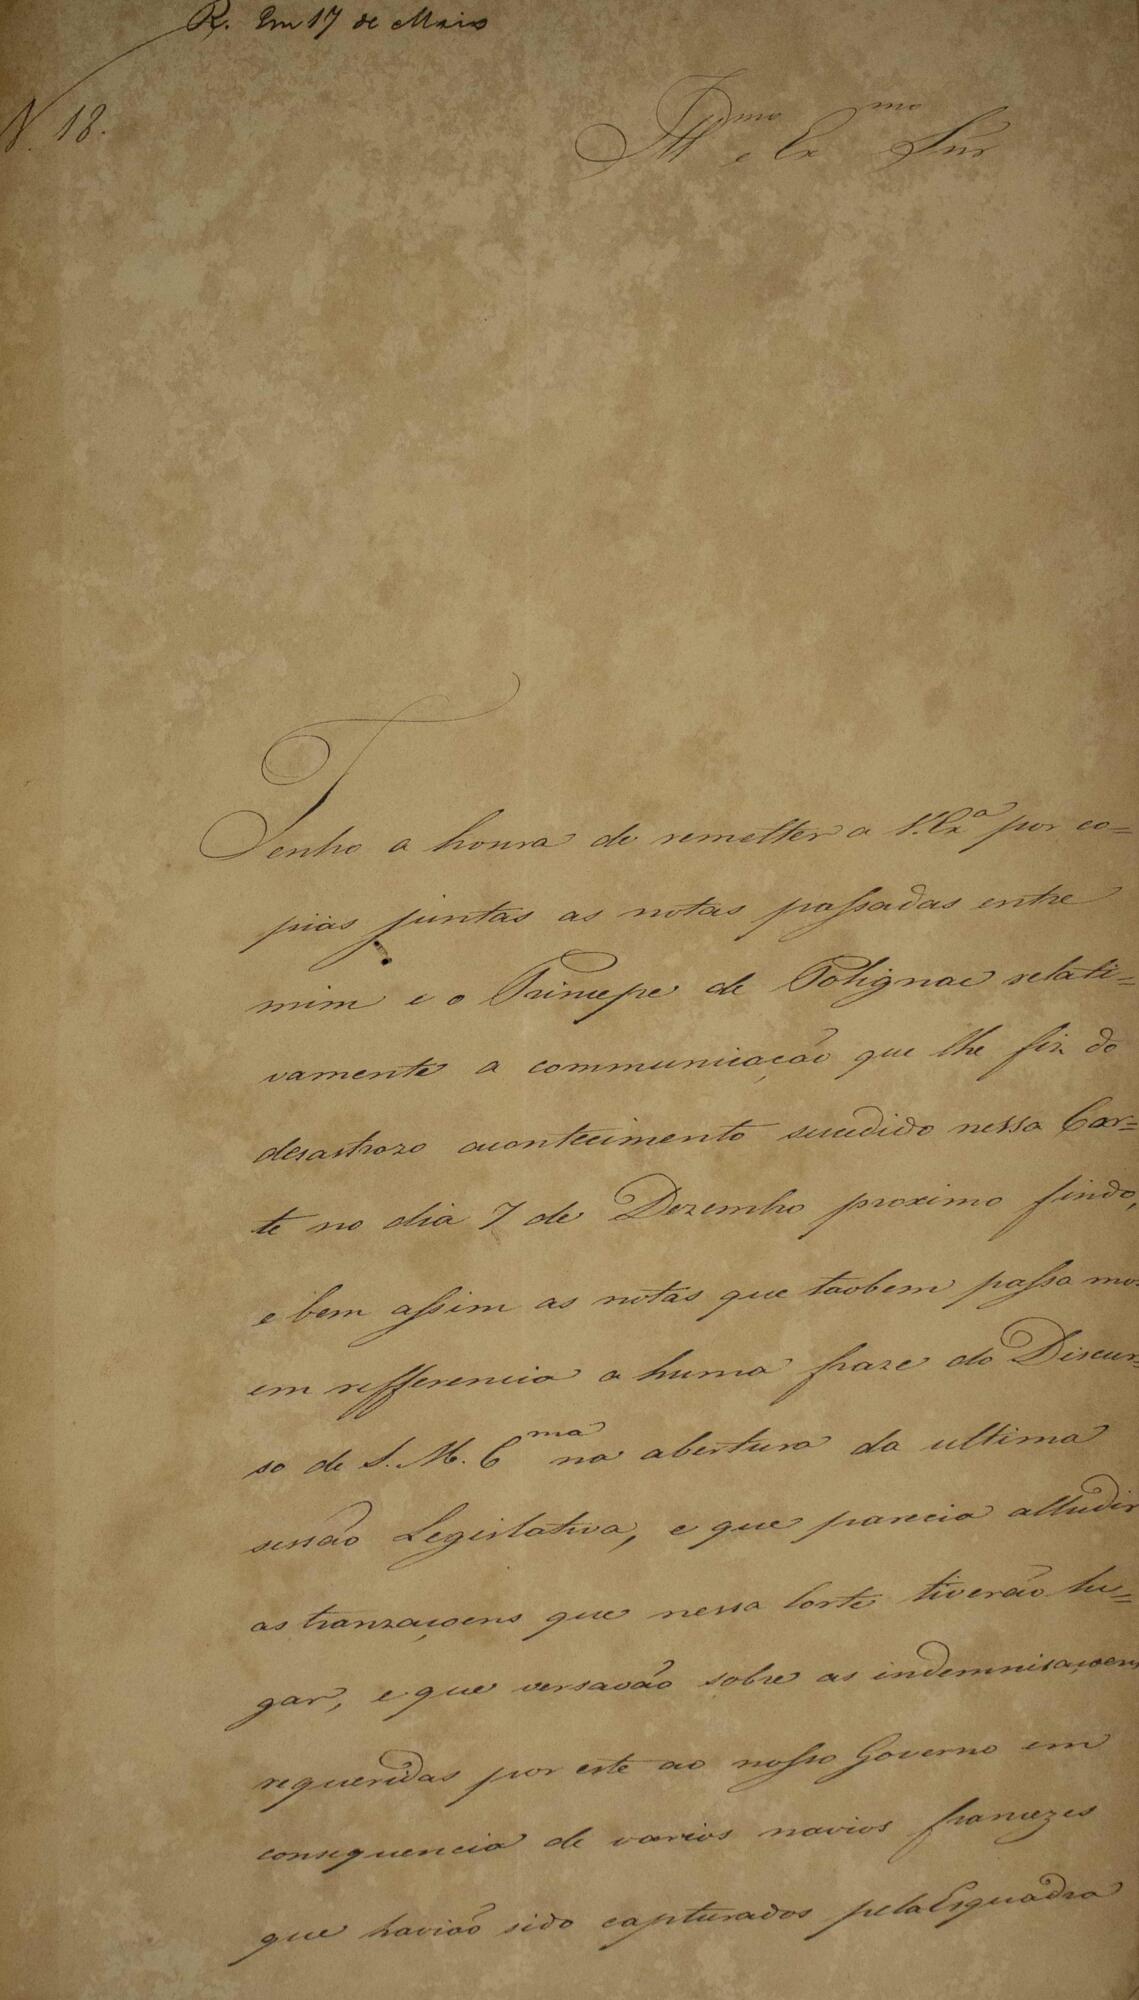 R. Em 17 de Maio
N. 18.
Illmo e Exmo Snr
Tenho a honra de remetter a V. Exa por co=
pias juntas as notas passadas entre
mim e o Princepe de Polignac relati=
vamente a communicação que lhe fiz do
desastrozo acontecimento sucedido nessa Cor=
te no dia 7 de Dezembro proximo findo,
e bem assim as notas que taobem passamo
em refferencia a huma fraze do Discur=
so de S. M. Cma na abertura da ultima
sessão Legislativa, e que parecia alludir
as tranzaçoens que nessa Corte tiverão lu=
gar, e que versavão sobre as indemnisaçoens
requeridas por este ao nosso Governo em
consequencia de varios navios francezes
que havião sido capturados pela Esquadra